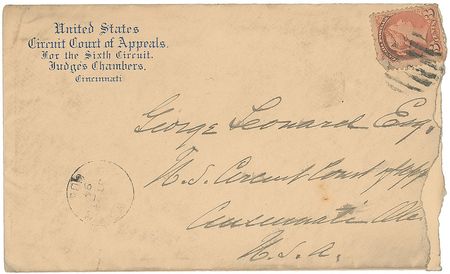 United States
Circuit Court of Appeals.
For the Sixth Circuit.
Judge's Chambers.
Cincinnati
George Leonard Esq.
U.S. Circuit Court of App
Cincinnati Oh
U.S.A.